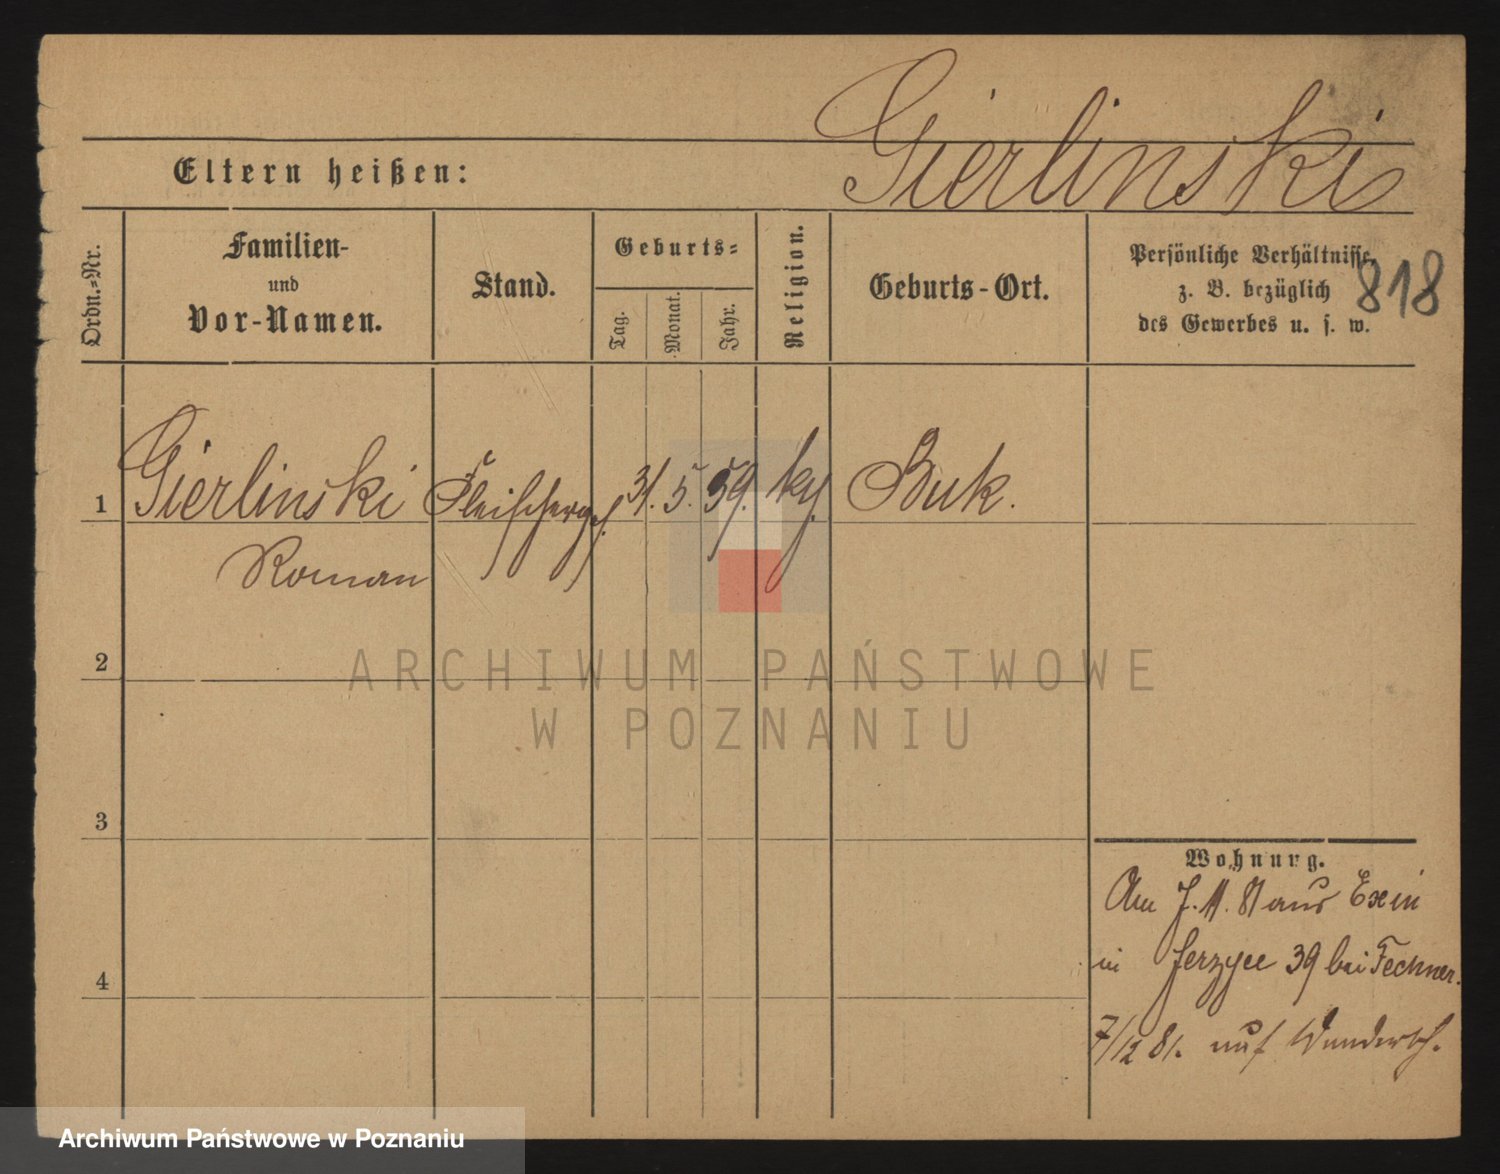 Gierlinski
Eltern heißen:
Ordn.-Nr.
Familien-
und
Vor-Namen.
Stand.
Geburts-
Tag.
Monat.
Jahr.
Religion.
Geburts-Ort.
Persönliche Verhältnisse,
z. B. bezüglich
des Gewerbes u. s. w.
818
1 Gierlinski Fleischerges. 31. 5. 59. kg Buk.
Roman
2
3
4
Wohnung.
Am 7. 11. 81 aus Exin
in Jerzyce 39 bei Fechner.
7/12 81. auf Wandersch.
ARCHIWUM PAŃSTWOWE
W POZNANIU
Archiwum Państwowe w Poznaniu